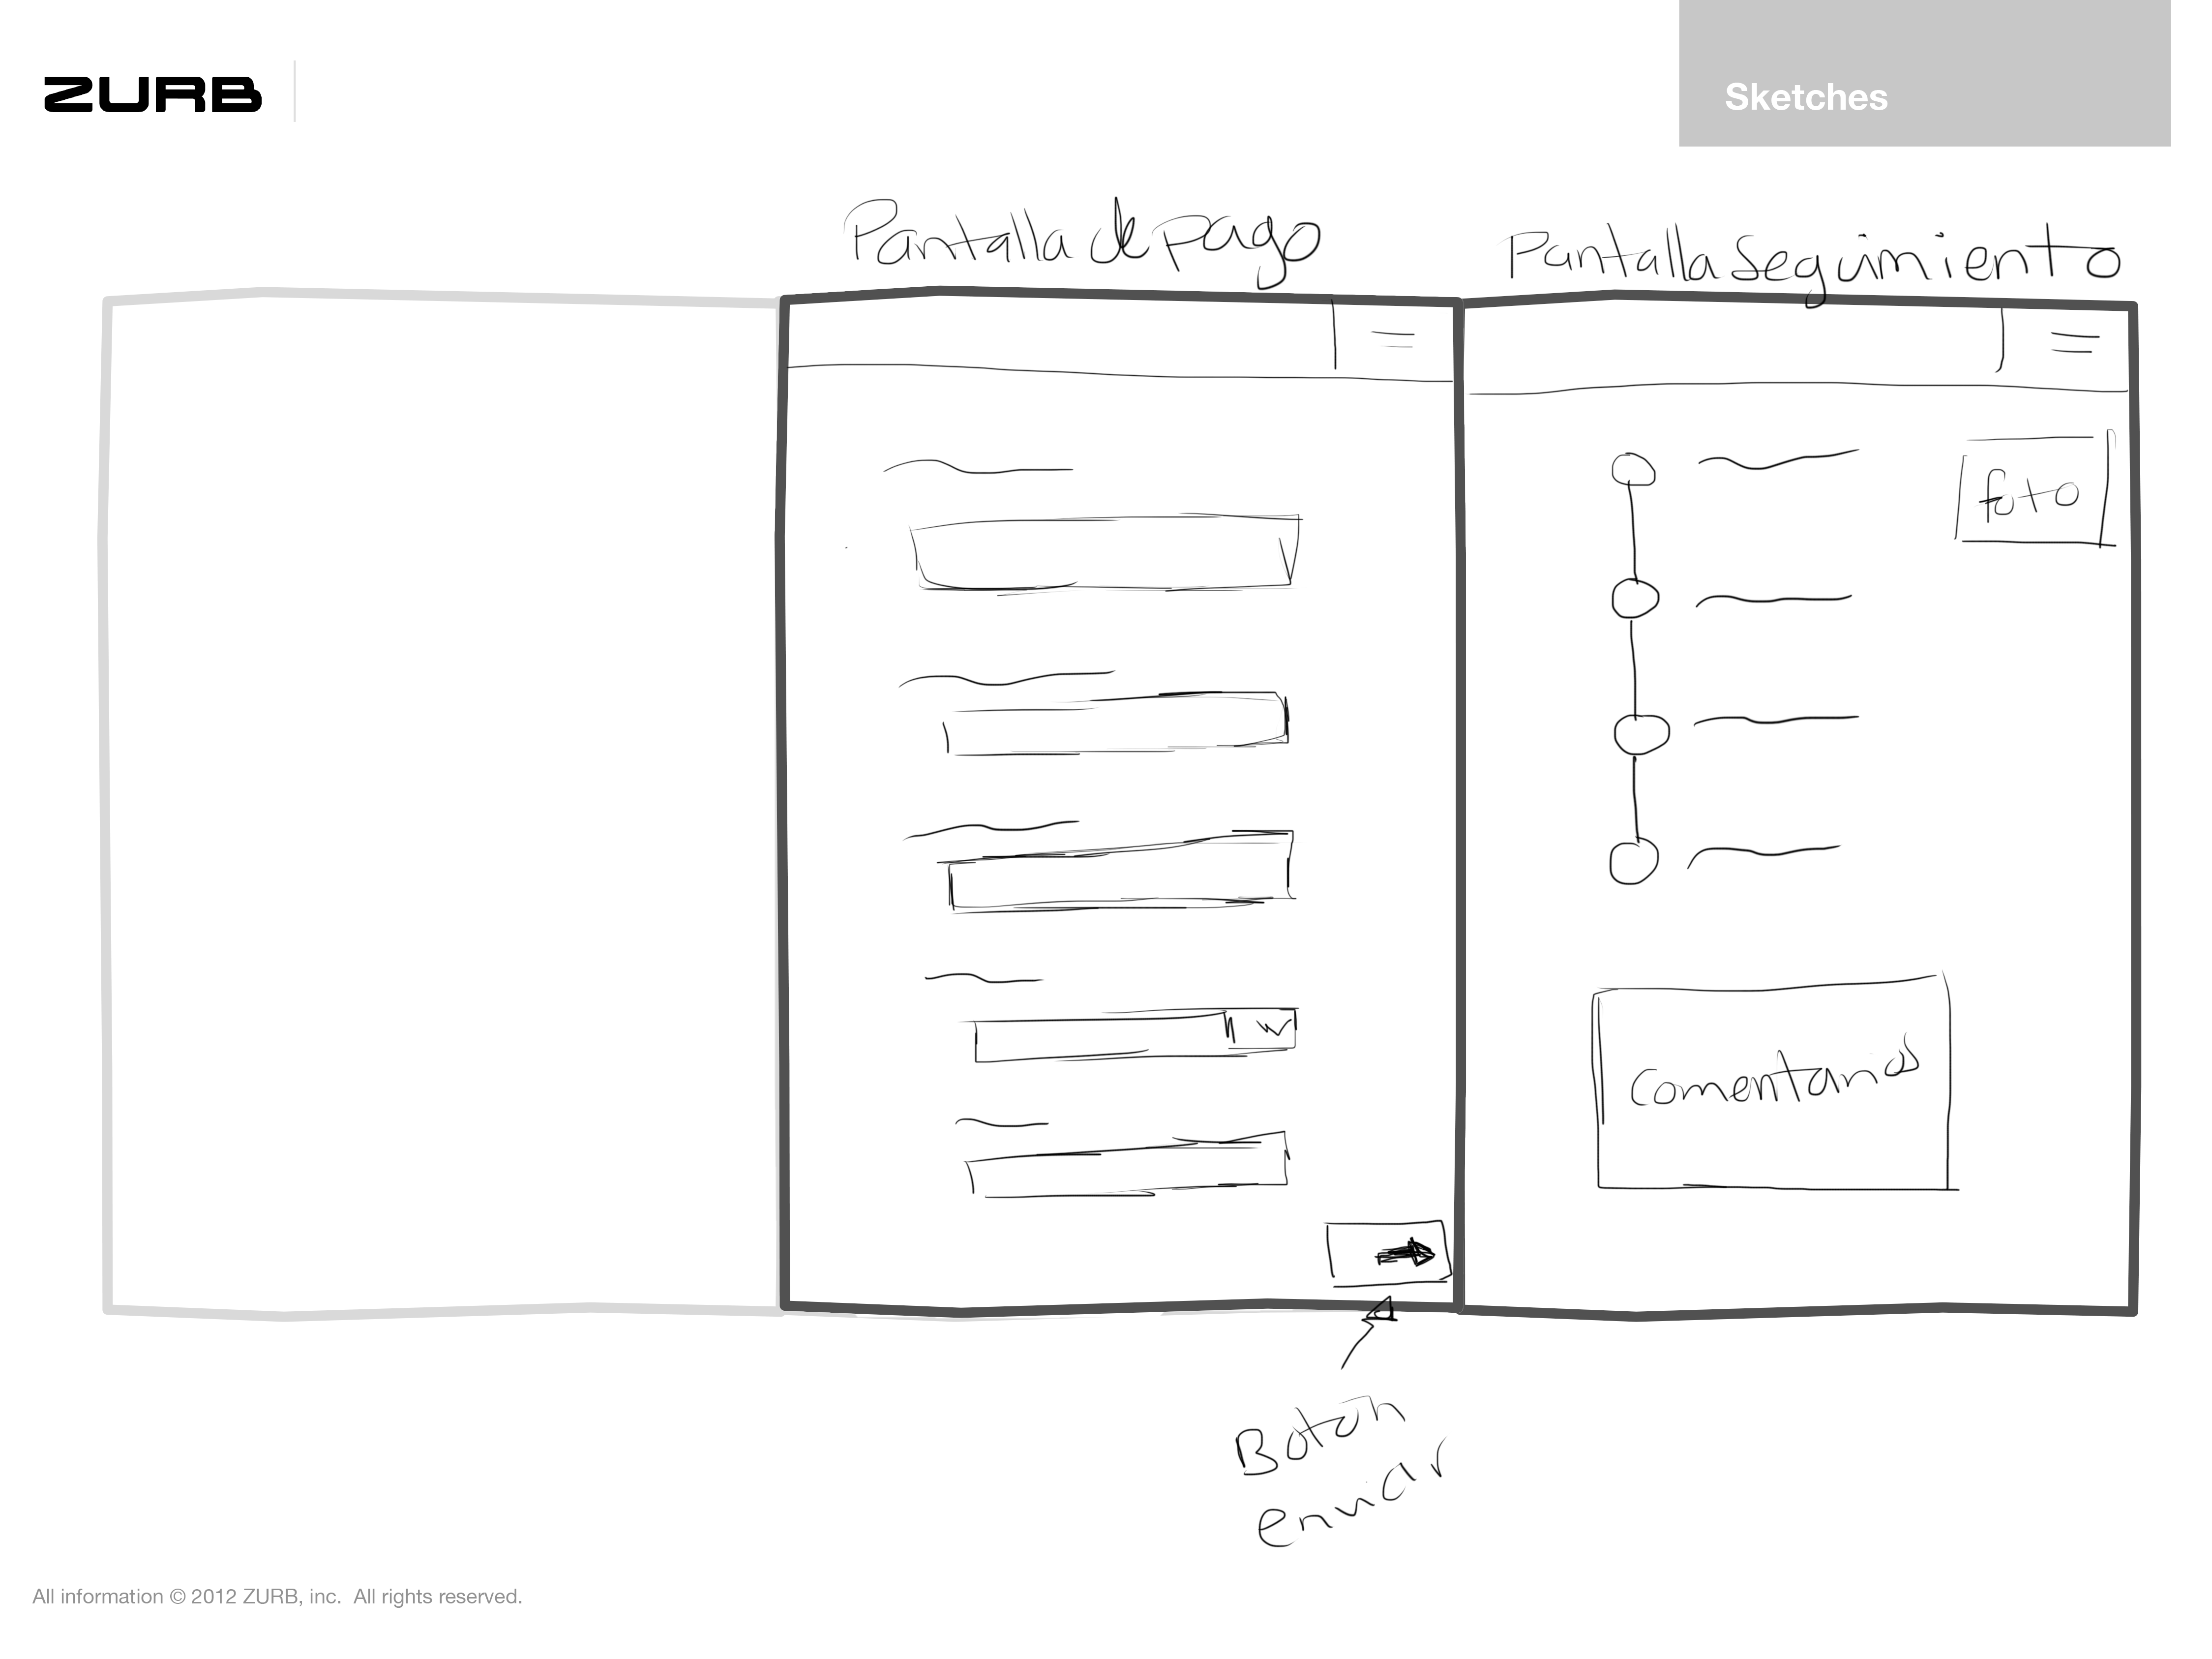 ZURB
Sketches
Pantalla de pago
Pantalla Seguimiento
foto
Comentarios
Boton
enviar
All information © 2012 ZURB, inc. All rights reserved.